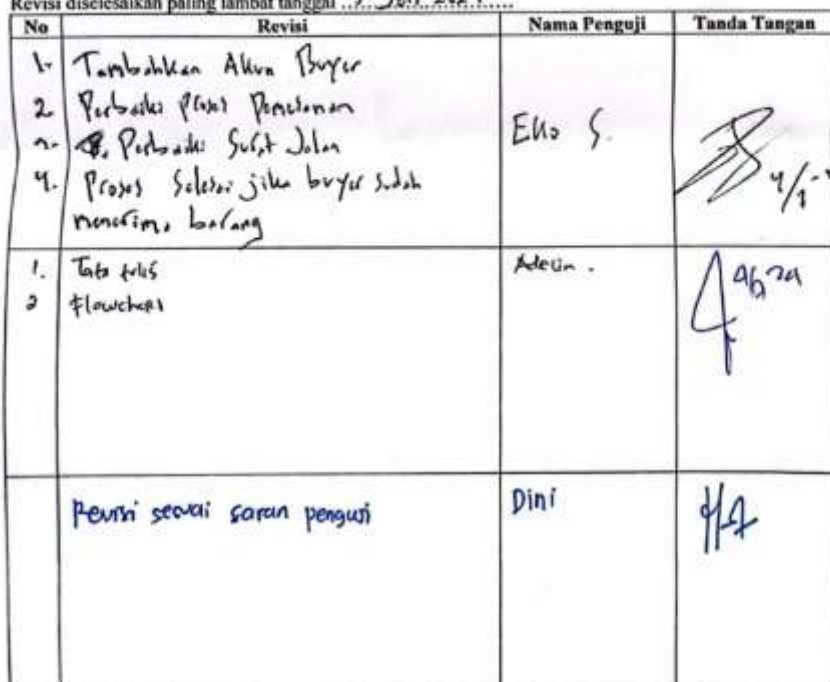 Revisi diselesaikan paling lambat tanggal
No Revisi Nama Penguji Tanda Tangan
1. Tambahkan Akun Buyer
2. Perbaiki proses Pemesanan
3. Perbaiki Surat Jalan
4. Proses Selesai jika buyer sudah
menerima barang
Eko S.
1. Tata tulis
2 Flowchart
Adelin.
Revisi sesuai saran penguji
Dini